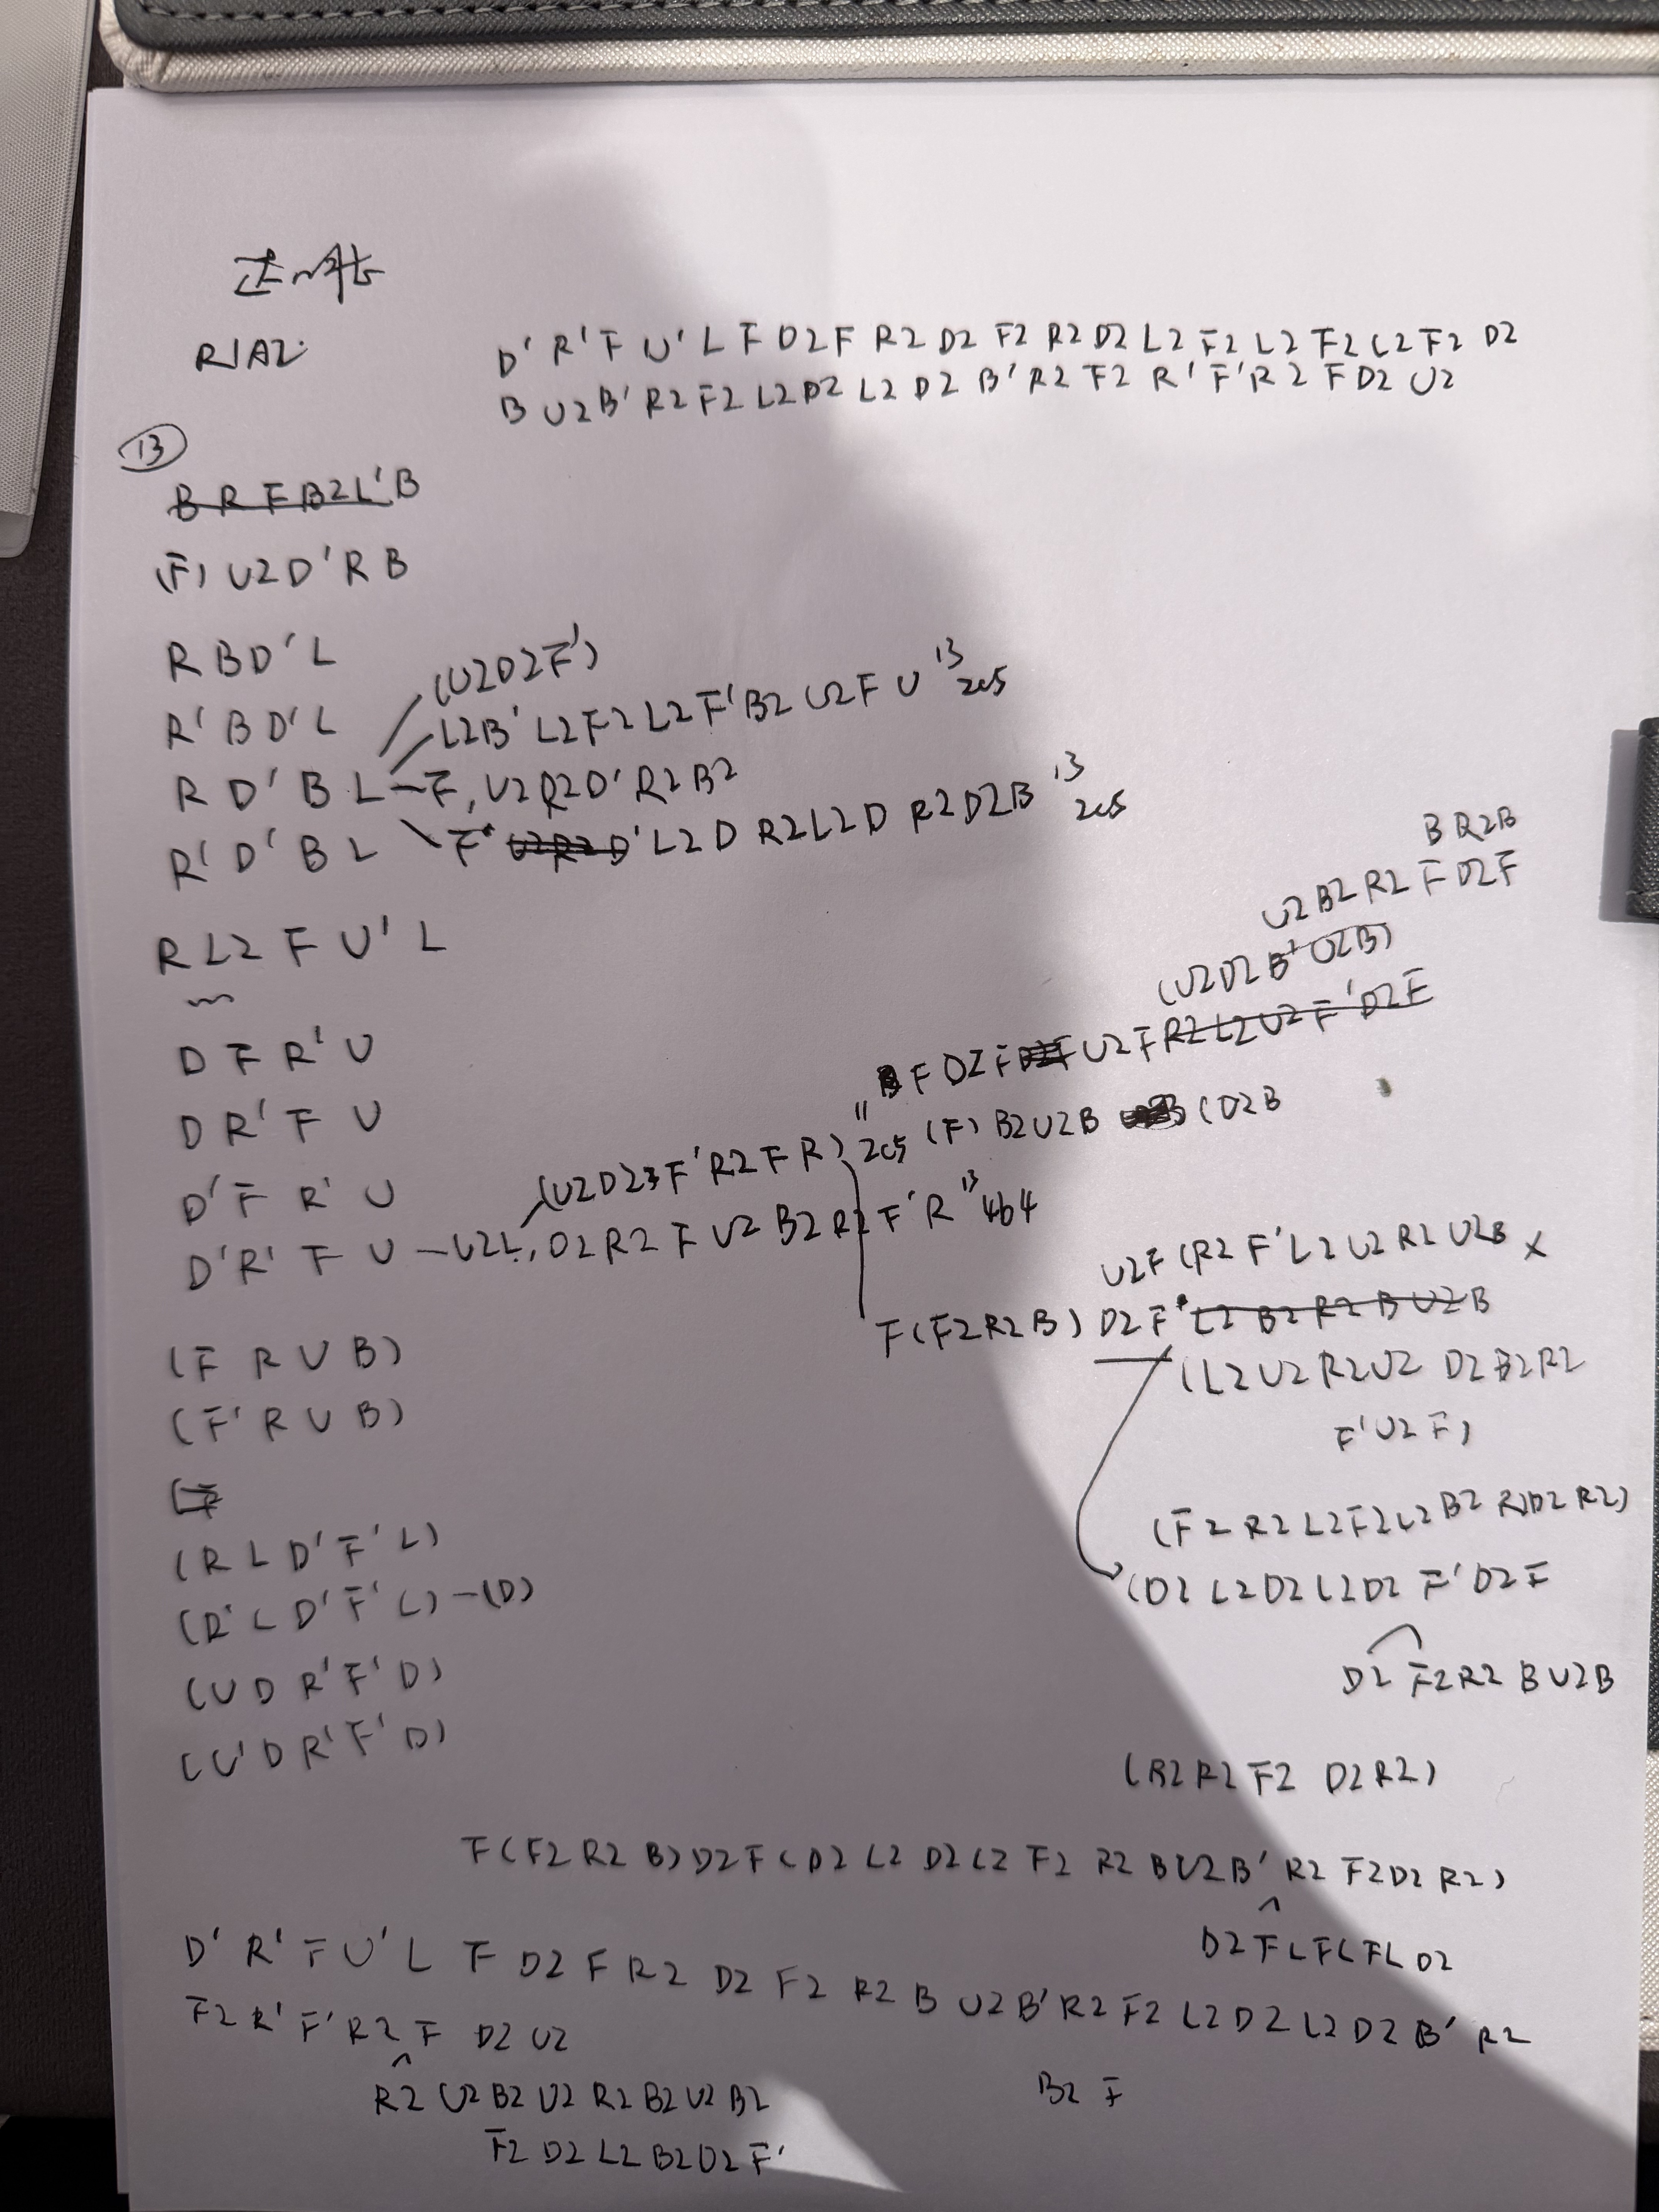 R1A2.
D' R' F U' L F D2 F R2 D2 F2 R2 D2 L2 F2 L2 F2 L2 F2 D2
B U2 B' R2 F2 L2 D2 L2 D2 B' R2 F2 R' F' R2 F D2 U2
13
B R F B2 L' B
(F) U2 D' R B
R B D' L
(U2 D2 F')
R' B D' L
L2 B' L2 F2 L2 F' B2 U2 F U 13 2c5
R D' B L — F, U2 R2 D' R2 B2
R' D' B L
F' U2 R2 D' L2 D R2 L2 D R2 D2 B 13 2c5
R L2 F U' L
B R2 B
U2 B2 R2 F D2 F
(U2 D2 B' U2 B)
D F R' U
F D2 F U2 F R2 L2 U2 F' D2 F
D R' F U
(U2 D2 F' R2 F R) 11 2c5 (F) B2 U2 B (D2 B
D' F R' U
D' R' F U — U2 L, D2 R2 F U2 B2 R2 F' R 13 4b4
U2 F (R2 F' L2 U2 R2 U2 B x
F (F2 R2 B) D2 F' L2 B2 R2 B U2 B
(F R U B)
(L2 U2 R2 U2 D2 B2 R2
(F' R U B)
F' U2 F)
(R L D' F' L)
(F2 R2 L2 F2 L2 B2 R2 D2 R2)
(R' L D' F' L) — (D)
(D2 L2 D2 L2 D2 F' D2 F
(U D R' F' D)
D2 F2 R2 B U2 B
(U' D R' F' D)
(B2 R2 F2 D2 R2)
F (F2 R2 B) D2 F (D2 L2 D2 L2 F2 R2 B U2 B' R2 F2 D2 R2)
D2 F L F L F L D2
D' R' F U' L F D2 F R2 D2 F2 R2 B U2 B' R2 F2 L2 D2 L2 D2 B' R2
F2 R' F' R2 F D2 U2
R2 U2 B2 U2 R2 B2 U2 B2
B2 F
F2 D2 L2 B2 D2 F'